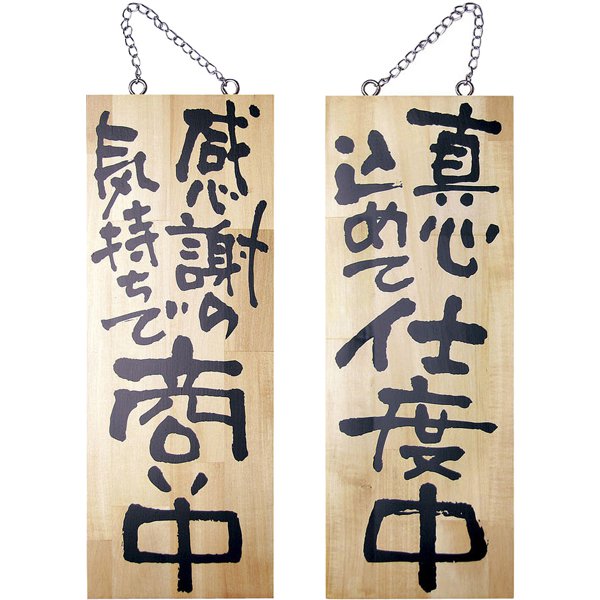 感謝の
気持ちで
商い中
真心
込めて
仕度中